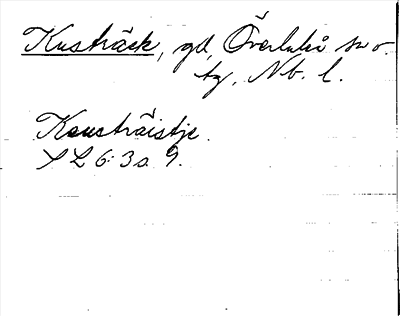 Kusträsk, gd, Överluleå sn o.
tg, Nb. l.
Kousträistje.
SL 6: 3 s 9.